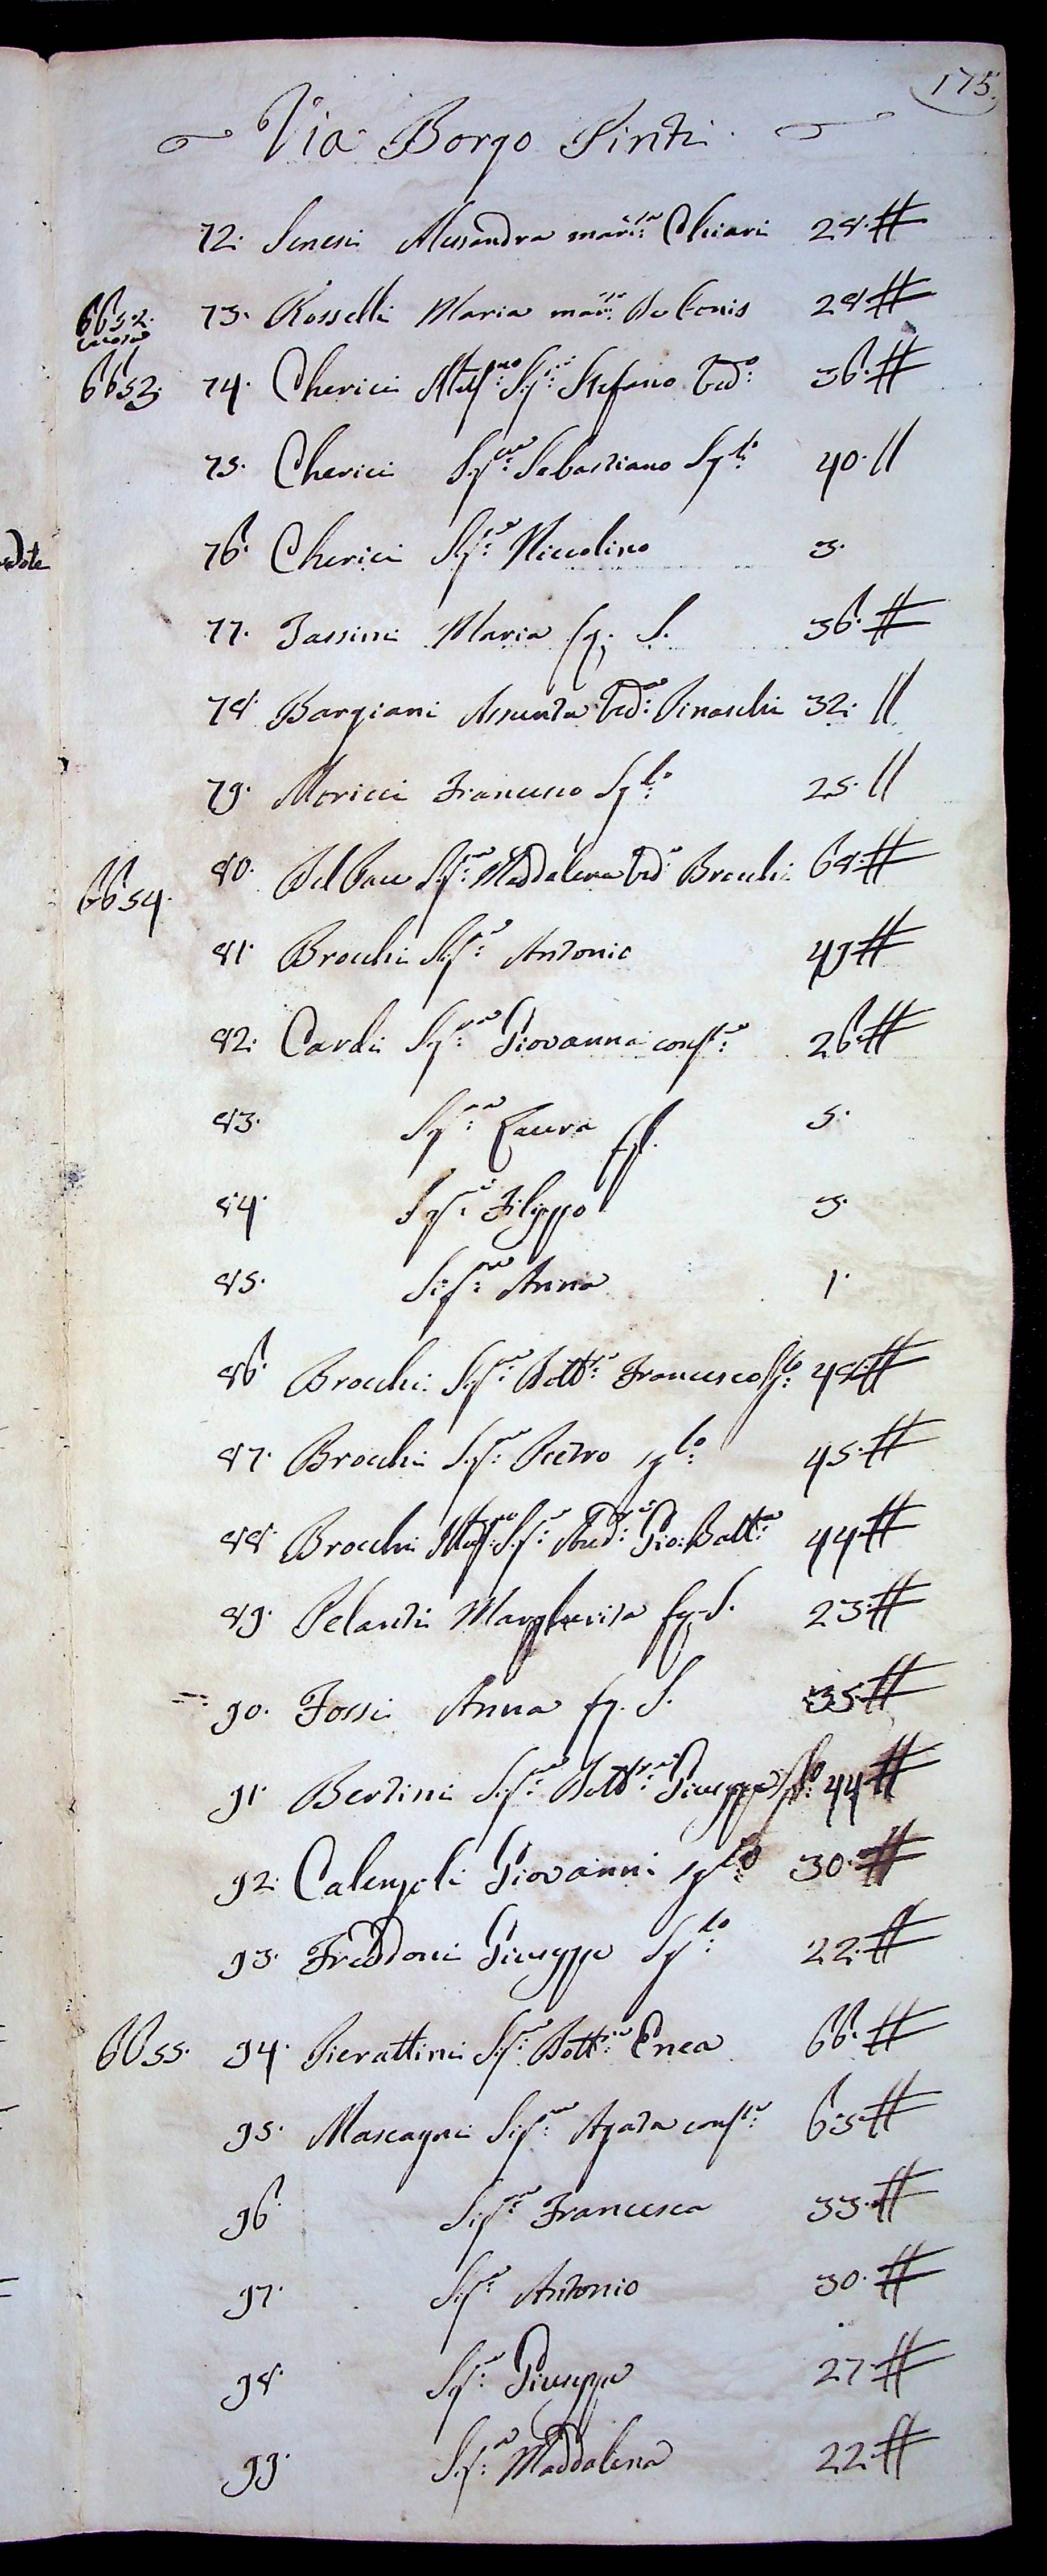 175.
Via Borgo Pinti
72. Senesi Alessandra mar:ta Chiari 28. #
6652. 73. Rosselli Maria mar:ta De Conis 28 #
6653. 74. Cherici Ill:mo Sig:re Stefano Ved:o 36. #
75. Cherici Sig:re Sebastiano Sg:lo 40. //
76. Cherici Sig:re Niccolino 3.
77. Tassini Maria fg. S. 36. #
78. Bargiani Assunta Ved:a Pinaschi 32. //
79. Moricci Francesco Sg:lo 25. //
6654. 80. Del Pace Sig:ra Maddalena Ved:a Brocchi 68. #
81. Brocchi Sig:re Antonio 49 #
82. Cardi Sig:ra Giovanna cons:te 26. #
83. Sig:ra Laura 5.
84. Sig:re Filippo 3.
fgl.
85. Sig:ra Anna 1.
86. Brocchi Sig:re Dott:re Francesco Sg:lo 48. #
87. Brocchi Sig:re Pietro sg:lo 45. #
88. Brocchi Ill:mo Sig:re Aud:re Gio: Batt:a 44. #
89. Pelanti Margherita fg. S. 23. #
90. Fossi Anna fg. S. 35. #
91. Bertini Sig:re Dott:re Giuseppe sg:lo 44 #
92. Calenzoli Giovanni sg:lo 30. #
93. Freddoni Giuseppe Sg:lo 22. #
6655. 94. Pierattini Sig:re Dott:re Enea 66. #
95. Mascagni Sig:ra Agata cons:te 65. #
96. Sig:ra Francesca 33. #
97. Sig:re Antonio 30. #
98. Sig:re Giuseppe 27. #
99. Sig:ra Maddalena 22. #